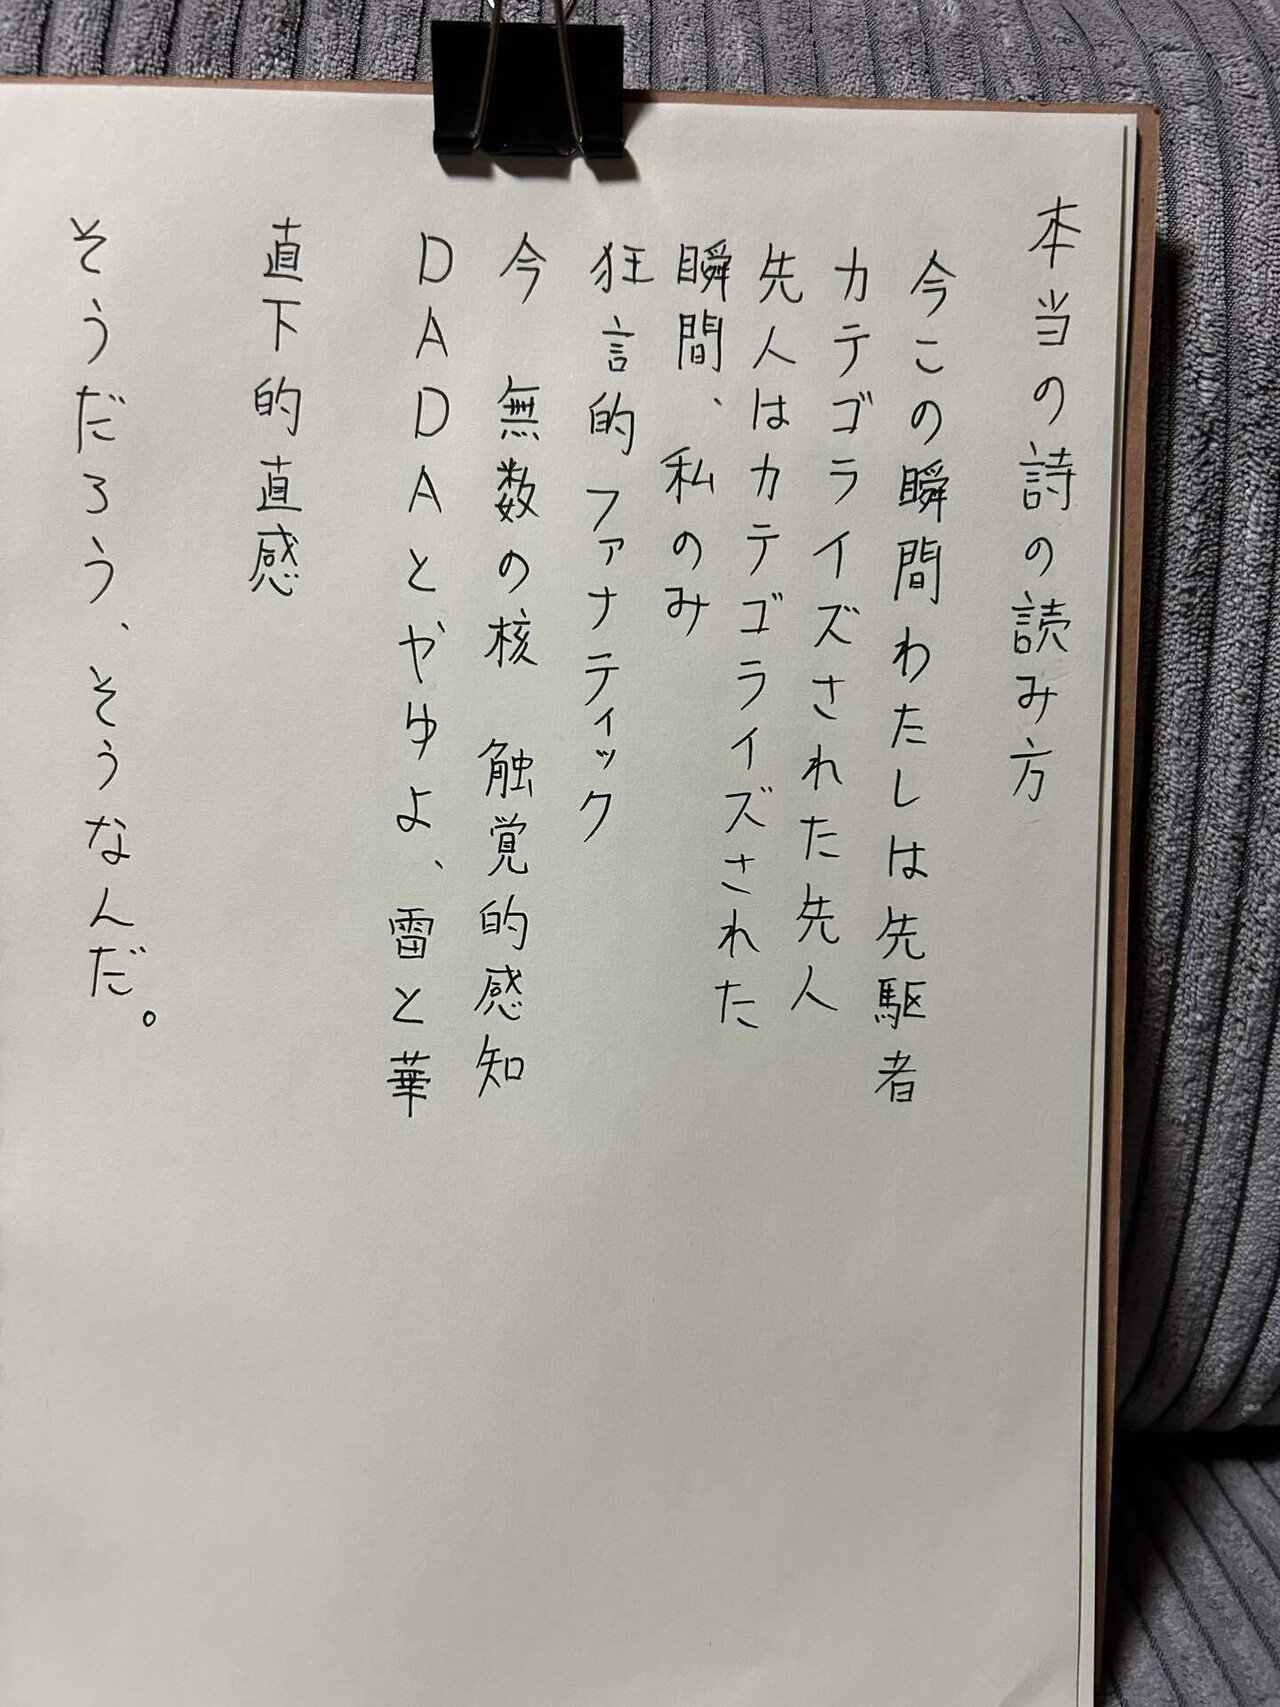 本当の詩の読み方
今この瞬間わたしは先駆者
カテゴライズされた先人
先人はカテゴライズされた
瞬間、私のみ
狂言的ファナティック
今　無数の核　触覚的感知
DADAとやゆよ、雷と華
直下的直感
そうだろう、そうなんだ。